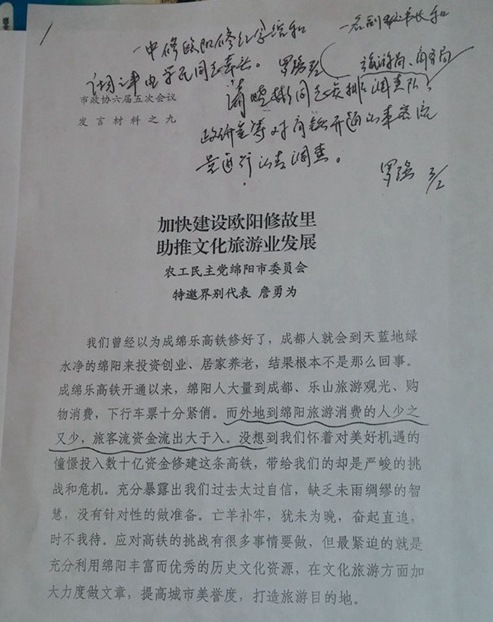 一名副秘书长和
市政协六届五次会议
发言材料之九
罗强 3/2
加快建设欧阳修故里
助推文化旅游业发展
农工民主党绵阳市委员会
特邀界别代表 詹勇为
我们曾经以为成绵乐高铁修好了，成都人就会到天蓝地绿
水净的绵阳来投资创业、居家养老，结果根本不是那么回事。
成绵乐高铁开通以来，绵阳人大量到成都、乐山旅游观光、购
物消费，下行车票十分紧俏。而外地到绵阳旅游消费的人少之
又少，旅客流资金流出大于入。没想到我们怀着对美好机遇的
憧憬投入数十亿资金修建这条高铁，带给我们的却是严峻的挑
战和危机。充分暴露出我们过去太过自信，缺乏未雨绸缪的智
慧，没有针对性的做准备。亡羊补牢，犹未为晚，奋起直追，
时不我待。应对高铁的挑战有很多事情要做，但最紧迫的就是
充分利用绵阳丰富而优秀的历史文化资源，在文化旅游方面加
大力度做文章，提高城市美誉度，打造旅游目的地。